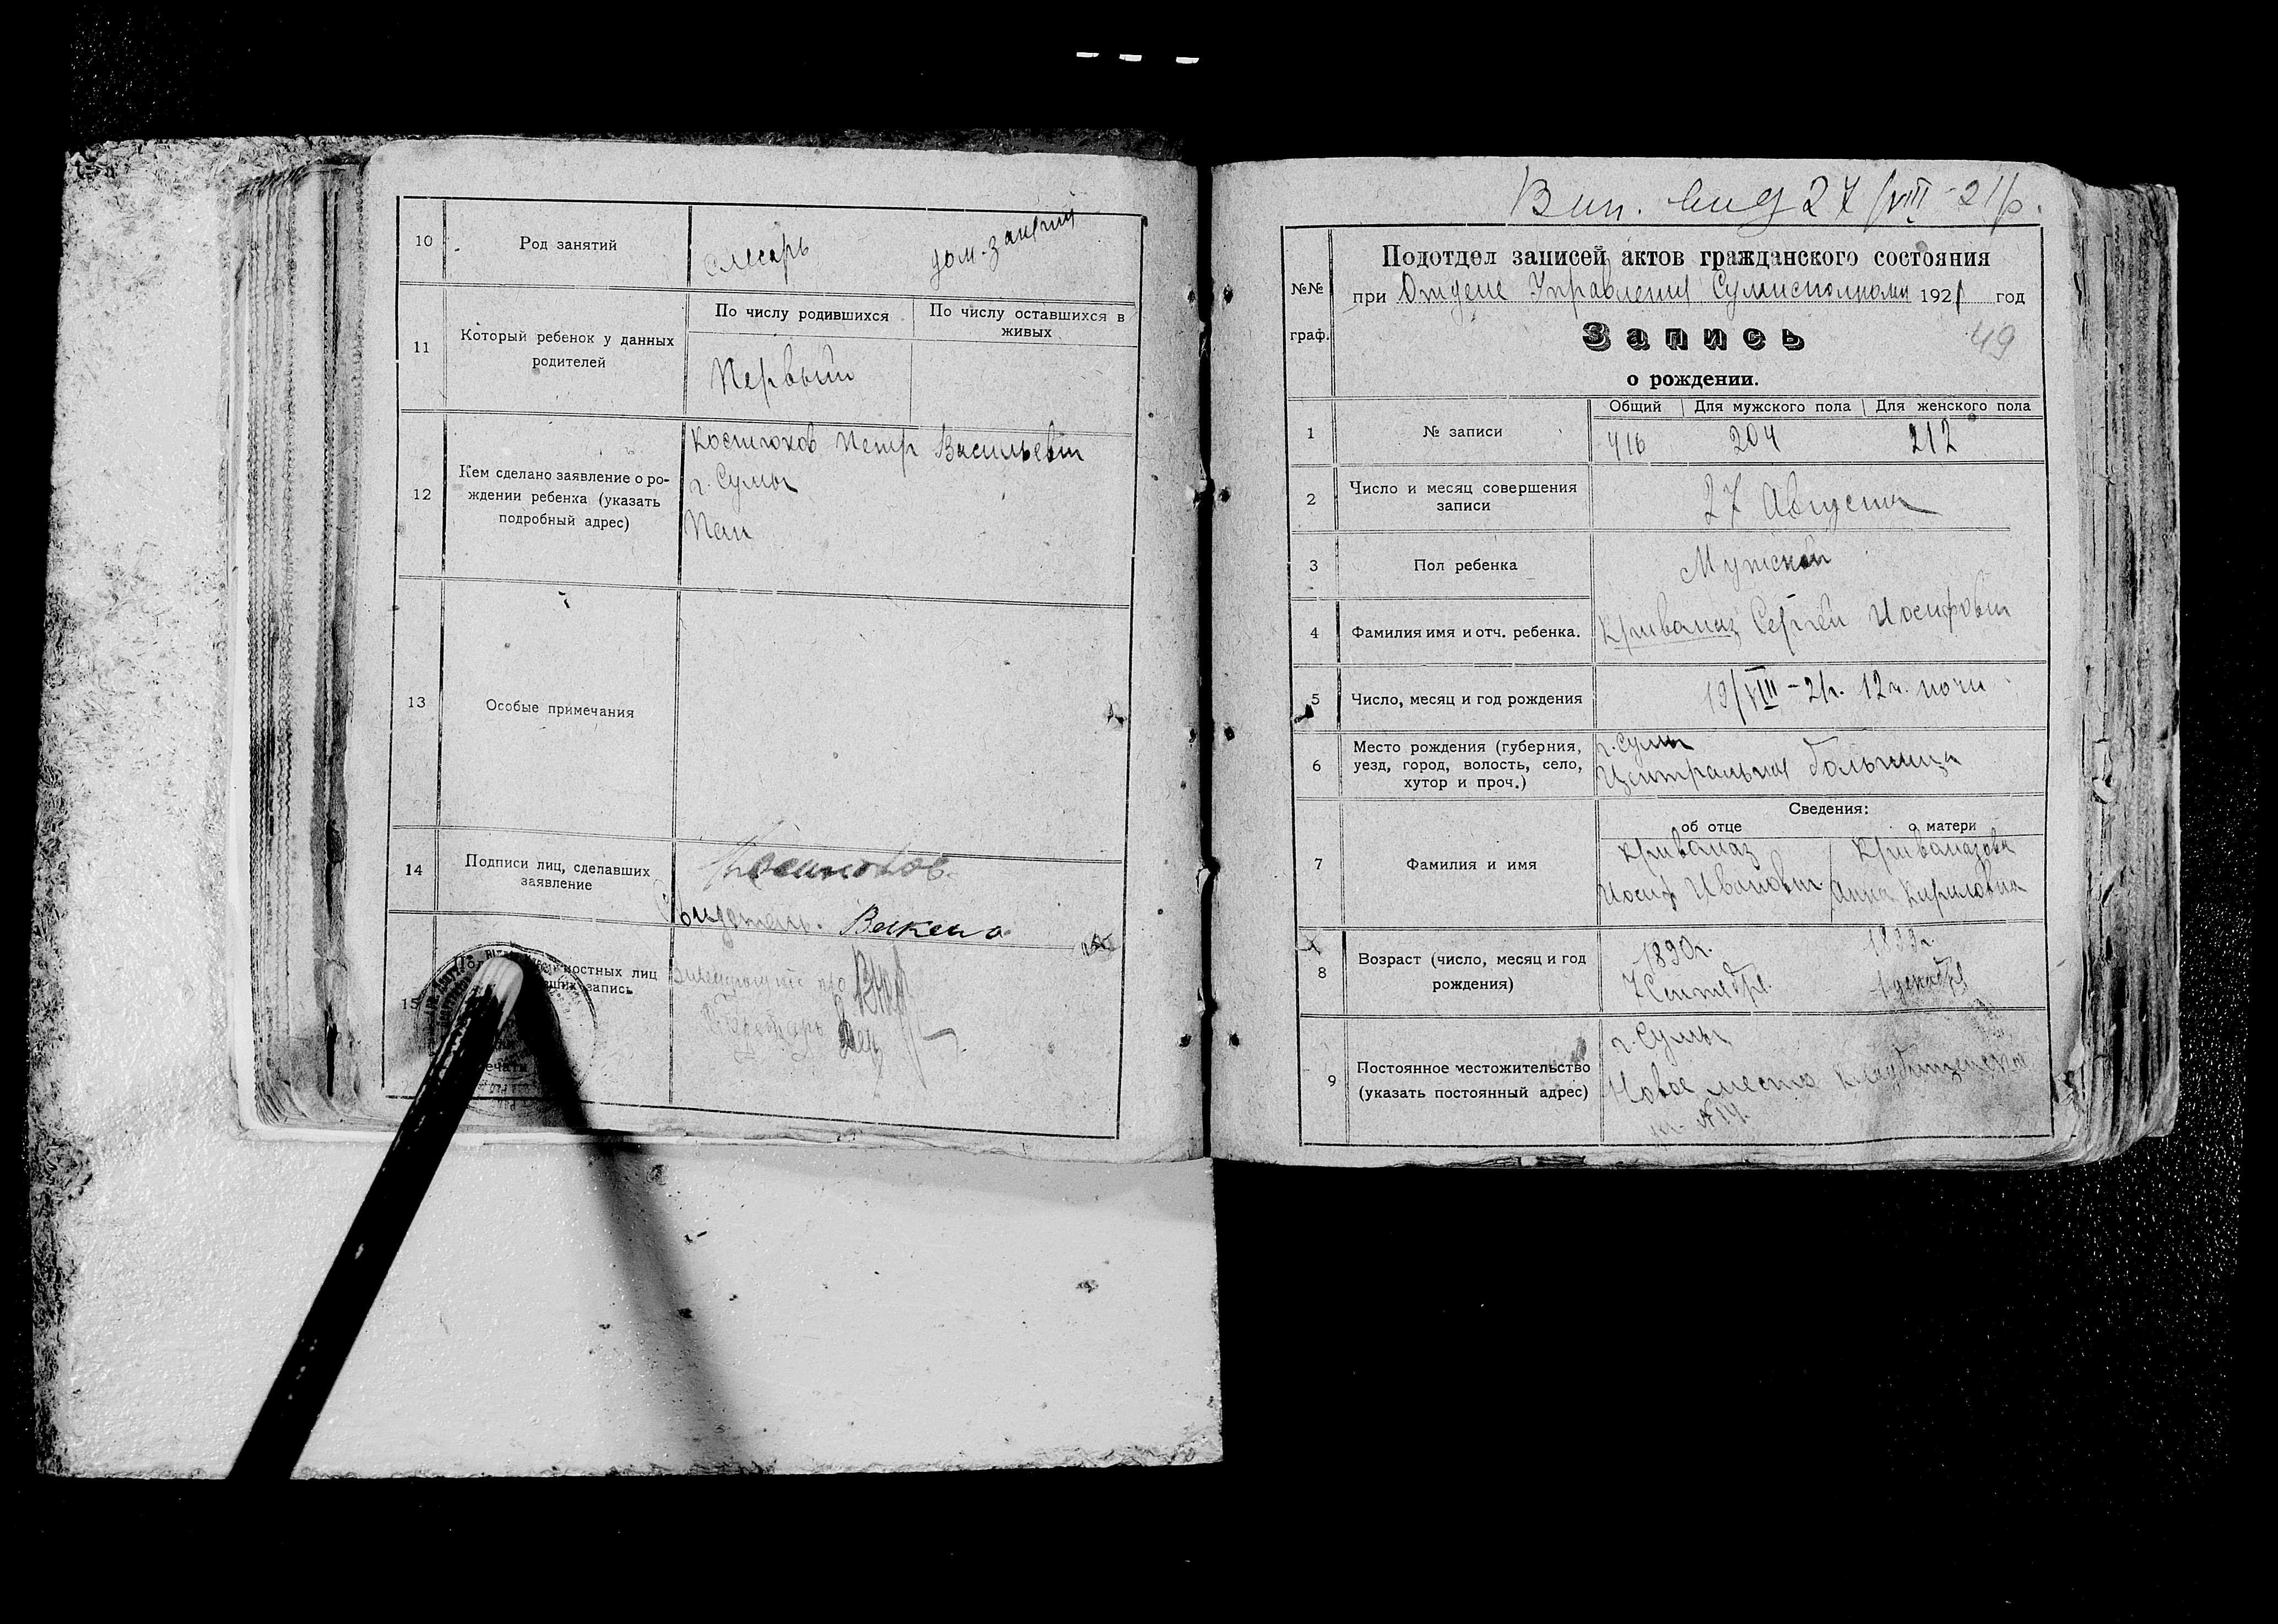 10
Род занятий
слесарь
дом. занятия
11
Который ребенок у данных
родителей
По числу родившихся
По числу оставшихся в
живых
Первый
12
Кем сделано заявление о ро-
ждении ребенка (указать
подробный адрес)
Костюков Петр Васильевич
г. Сумы
13
Особые примечания
14
Подписи лиц, сделавших
заявление
Костюков.
Свидетель.
15
ностных лиц
запись
Секретарь
Вип. вид 27/VIII-21р.
№№
граф.
Подотдел записей актов гражданского состояния
при Отделе Управления Сумисполкома 1921 год
Запись
49
о рождении.
1
№ записи
Общий
Для мужского пола
Для женского пола
416
204
212
2
Число и месяц совершения
записи
27 Августа
3
Пол ребенка
Мужской
4
Фамилия имя и отч. ребенка.
Кривомаз Сергей Иосифович
5
Число, месяц и год рождения
19/VIII-21г. 12ч. ночи
6
Место рождения (губерния,
уезд, город, волость, село,
хутор и проч.)
г. Сумы
Центральная больница
7
Фамилия и имя
Сведения:
об отце
о матери
Кривомаз
Иосиф Иванович
Кривомазова
Анна Кириловна
8
Возраст (число, месяц и год
рождения)
1890г.
7 Сентября
1 декабря
9
Постоянное местожительство
(указать постоянный адрес)
г. Сумы
Новое место Кладбищенская
№ 14.